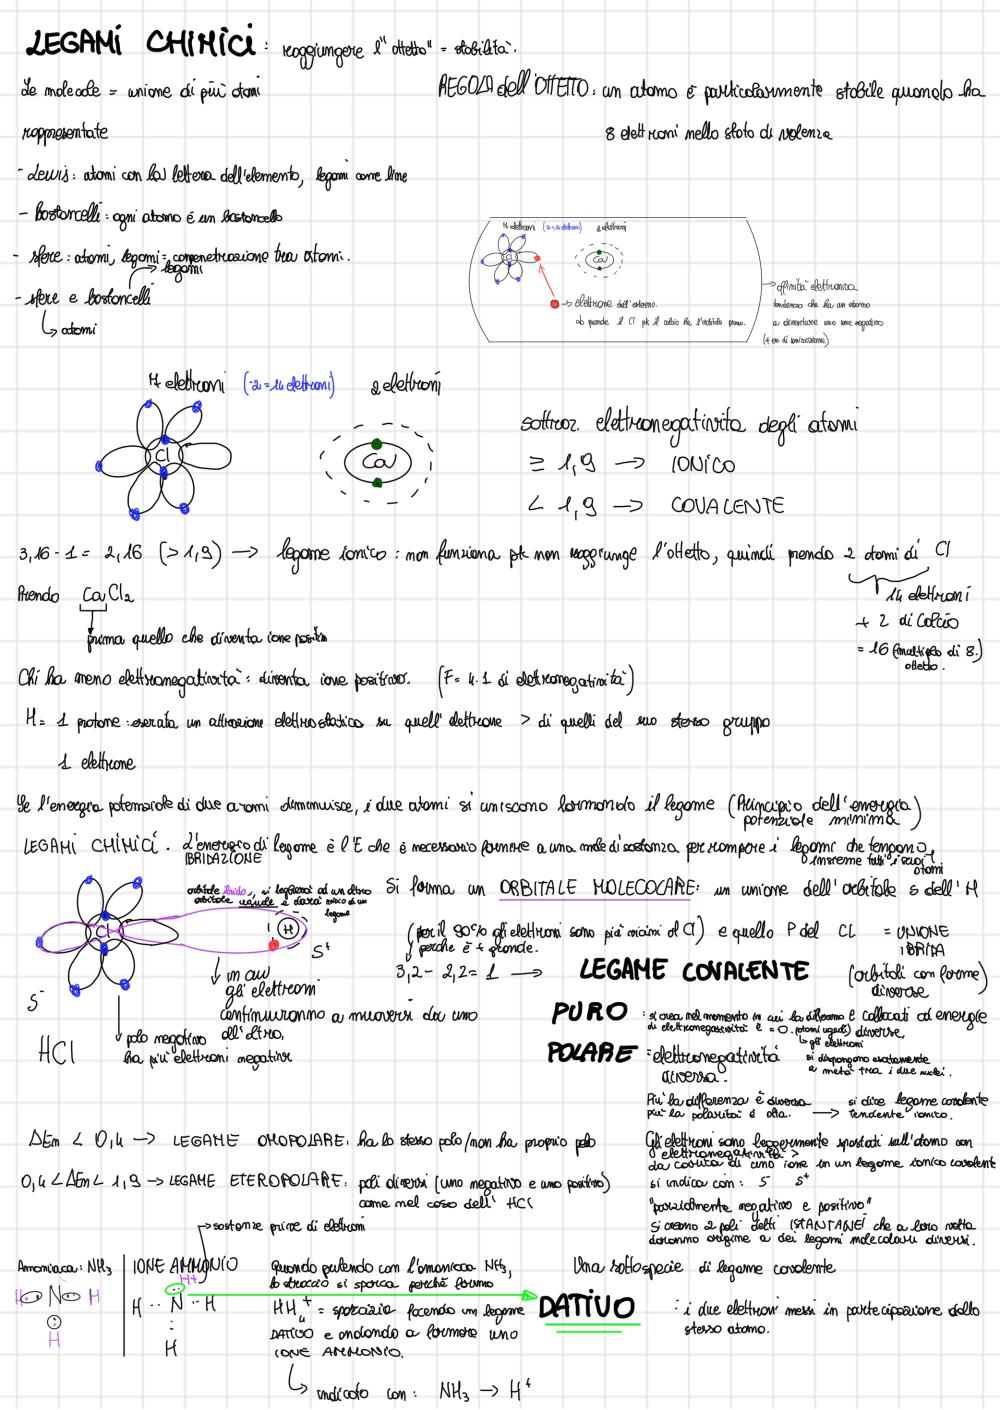 LEGAMI CHIMICI : raggiungere l'"ottetto" = stabilità.
Le molecole = unione di più atomi
rappresentate
- Lewis: atomi con la lettera dell'elemento, legami come line
- Bastoncelli: ogni atomo è un bastoncello
- sfere: atomi, legami = compenetrazione tra atomi.
legami
- sfere e bastoncelli
atomi
REGOLA dell'OTTETTO: un atomo è particolarmente stabile quando ha
8 elettroni nello stato di valenza
7 elettroni (·2=14 elettroni) 2 elettroni
Cl Ca
→ elettrone dall'esterno.
lo prende il Cl pk il calcio ha l'orbitale pieno.
affinità elettronica
tendenza che ha un atomo
a diventare uno ione negativo
(≠ en di ionizzazione)
7 elettroni (·2=14 elettroni) 2 elettroni
Cl Ca
sottraz. elettronegatività degli atomi
≥ 1,9 → IONICO
< 1,9 → COVALENTE
3,16 - 1 = 2,16 (>1,9) → legame ionico: non funziona pk non raggiunge l'ottetto, quindi prendo 2 atomi di Cl
14 elettroni
+ 2 di Calcio
= 16 (multiplo di 8.)
ottetto.
Prendo CaCl₂
prima quello che diventa ione positivo
Chi ha meno elettronegatività: diventa ione positivo. (F= 4.1 di elettronegatività)
H = 1 protone: esercita un attrazione elettrostatica su quell'elettrone > di quelli del suo stesso gruppo
1 elettrone
Se l'energia potenziale di due atomi diminuisce, i due atomi si uniscono formando il legame (Principio dell'energia
potenziale minima)
LEGAMI CHIMICI. L'energia di legame è l'E che è necessario fornire a una mole di sostanza per rompere i legami che tengono
insieme tutti i suoi
atomi
IBRIDAZIONE
orbitale ibrido, si legherà ad un altro
orbitale uguale e darà inizio ad un
legame
Cl H
S⁻ S⁺
HCl
polo negativo
ha più elettroni negativi
in cui
gli elettroni
continuranno a muoversi da uno
all'altro.
Si forma un ORBITALE MOLECOLARE: un unione dell'orbitale s dell'H
(per il 90% gli elettroni sono più vicini al Cl) e quello P del CL = UNIONE
IBRIDA
perchè è + grande.
(orbitali con forme)
diverse
3,2 - 2,2 = 1 → LEGAME COVALENTE
e collocati ad energie
diverse.
PURO : si crea nel momento in cui la differenza
di elettronegatività è =0. (atomi uguali)
gli elettroni
si dispongono esattamente
a metà tra i due nuclei.
POLARE = elettronegatività
diversa.
Più la differenza è diversa
più la polarità è alta. → si dice legame covalente
tendente ionico.
Gli elettroni sono leggermente spostati sull'atomo con
elettronegatività >
da carica di uno ione in un legame ionico covalente
si indica con: S⁻ S⁺
"parzialmente negativo e positivo"
Si creano 2 poli detti ISTANTANEI che a loro volta
daranno origine a dei legami molecolari diversi.
ΔEn < 0,4 → LEGAME OMOPOLARE: ha lo stesso polo/non ha proprio polo
0,4 < ΔEn < 1,9 → LEGAME ETEROPOLARE: poli diversi (uno negativo e uno positivo)
come nel caso dell' HCl
sostanze prive di elettroni
Ammoniaca: NH₃
H N H
H
IONE AMMONIO
H+
H ·· N ·· H
H
Quando pulendo con l'ammoniaca NH₃,
lo straccio si sporca perchè formo
HH₄⁺ = sporcizia facendo un legame
DATIVO e andando a formare uno
IONE AMMONIO.
indicato con: NH₃ → H⁺
Una sottospecie di legame covalente
DATIVO : i due elettroni messi in partecipazione dallo
stesso atomo.